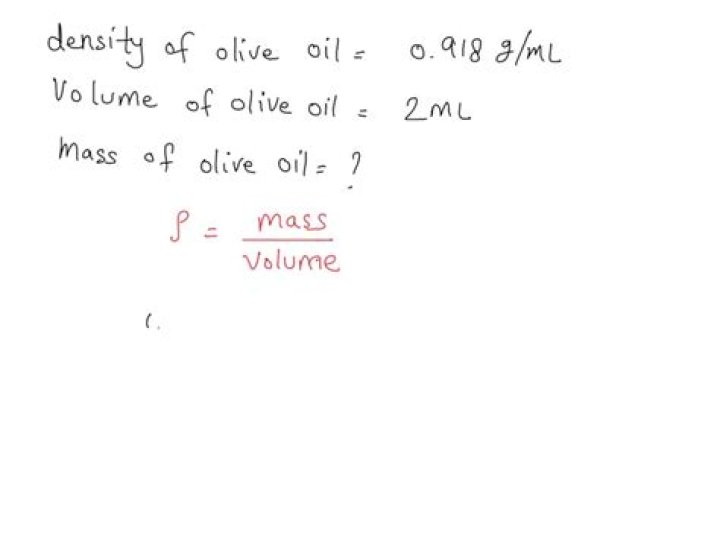 density of olive oil = 0.918 g/mL
Volume of olive oil = 2mL
Mass of olive oil = ?
ρ = mass
volume